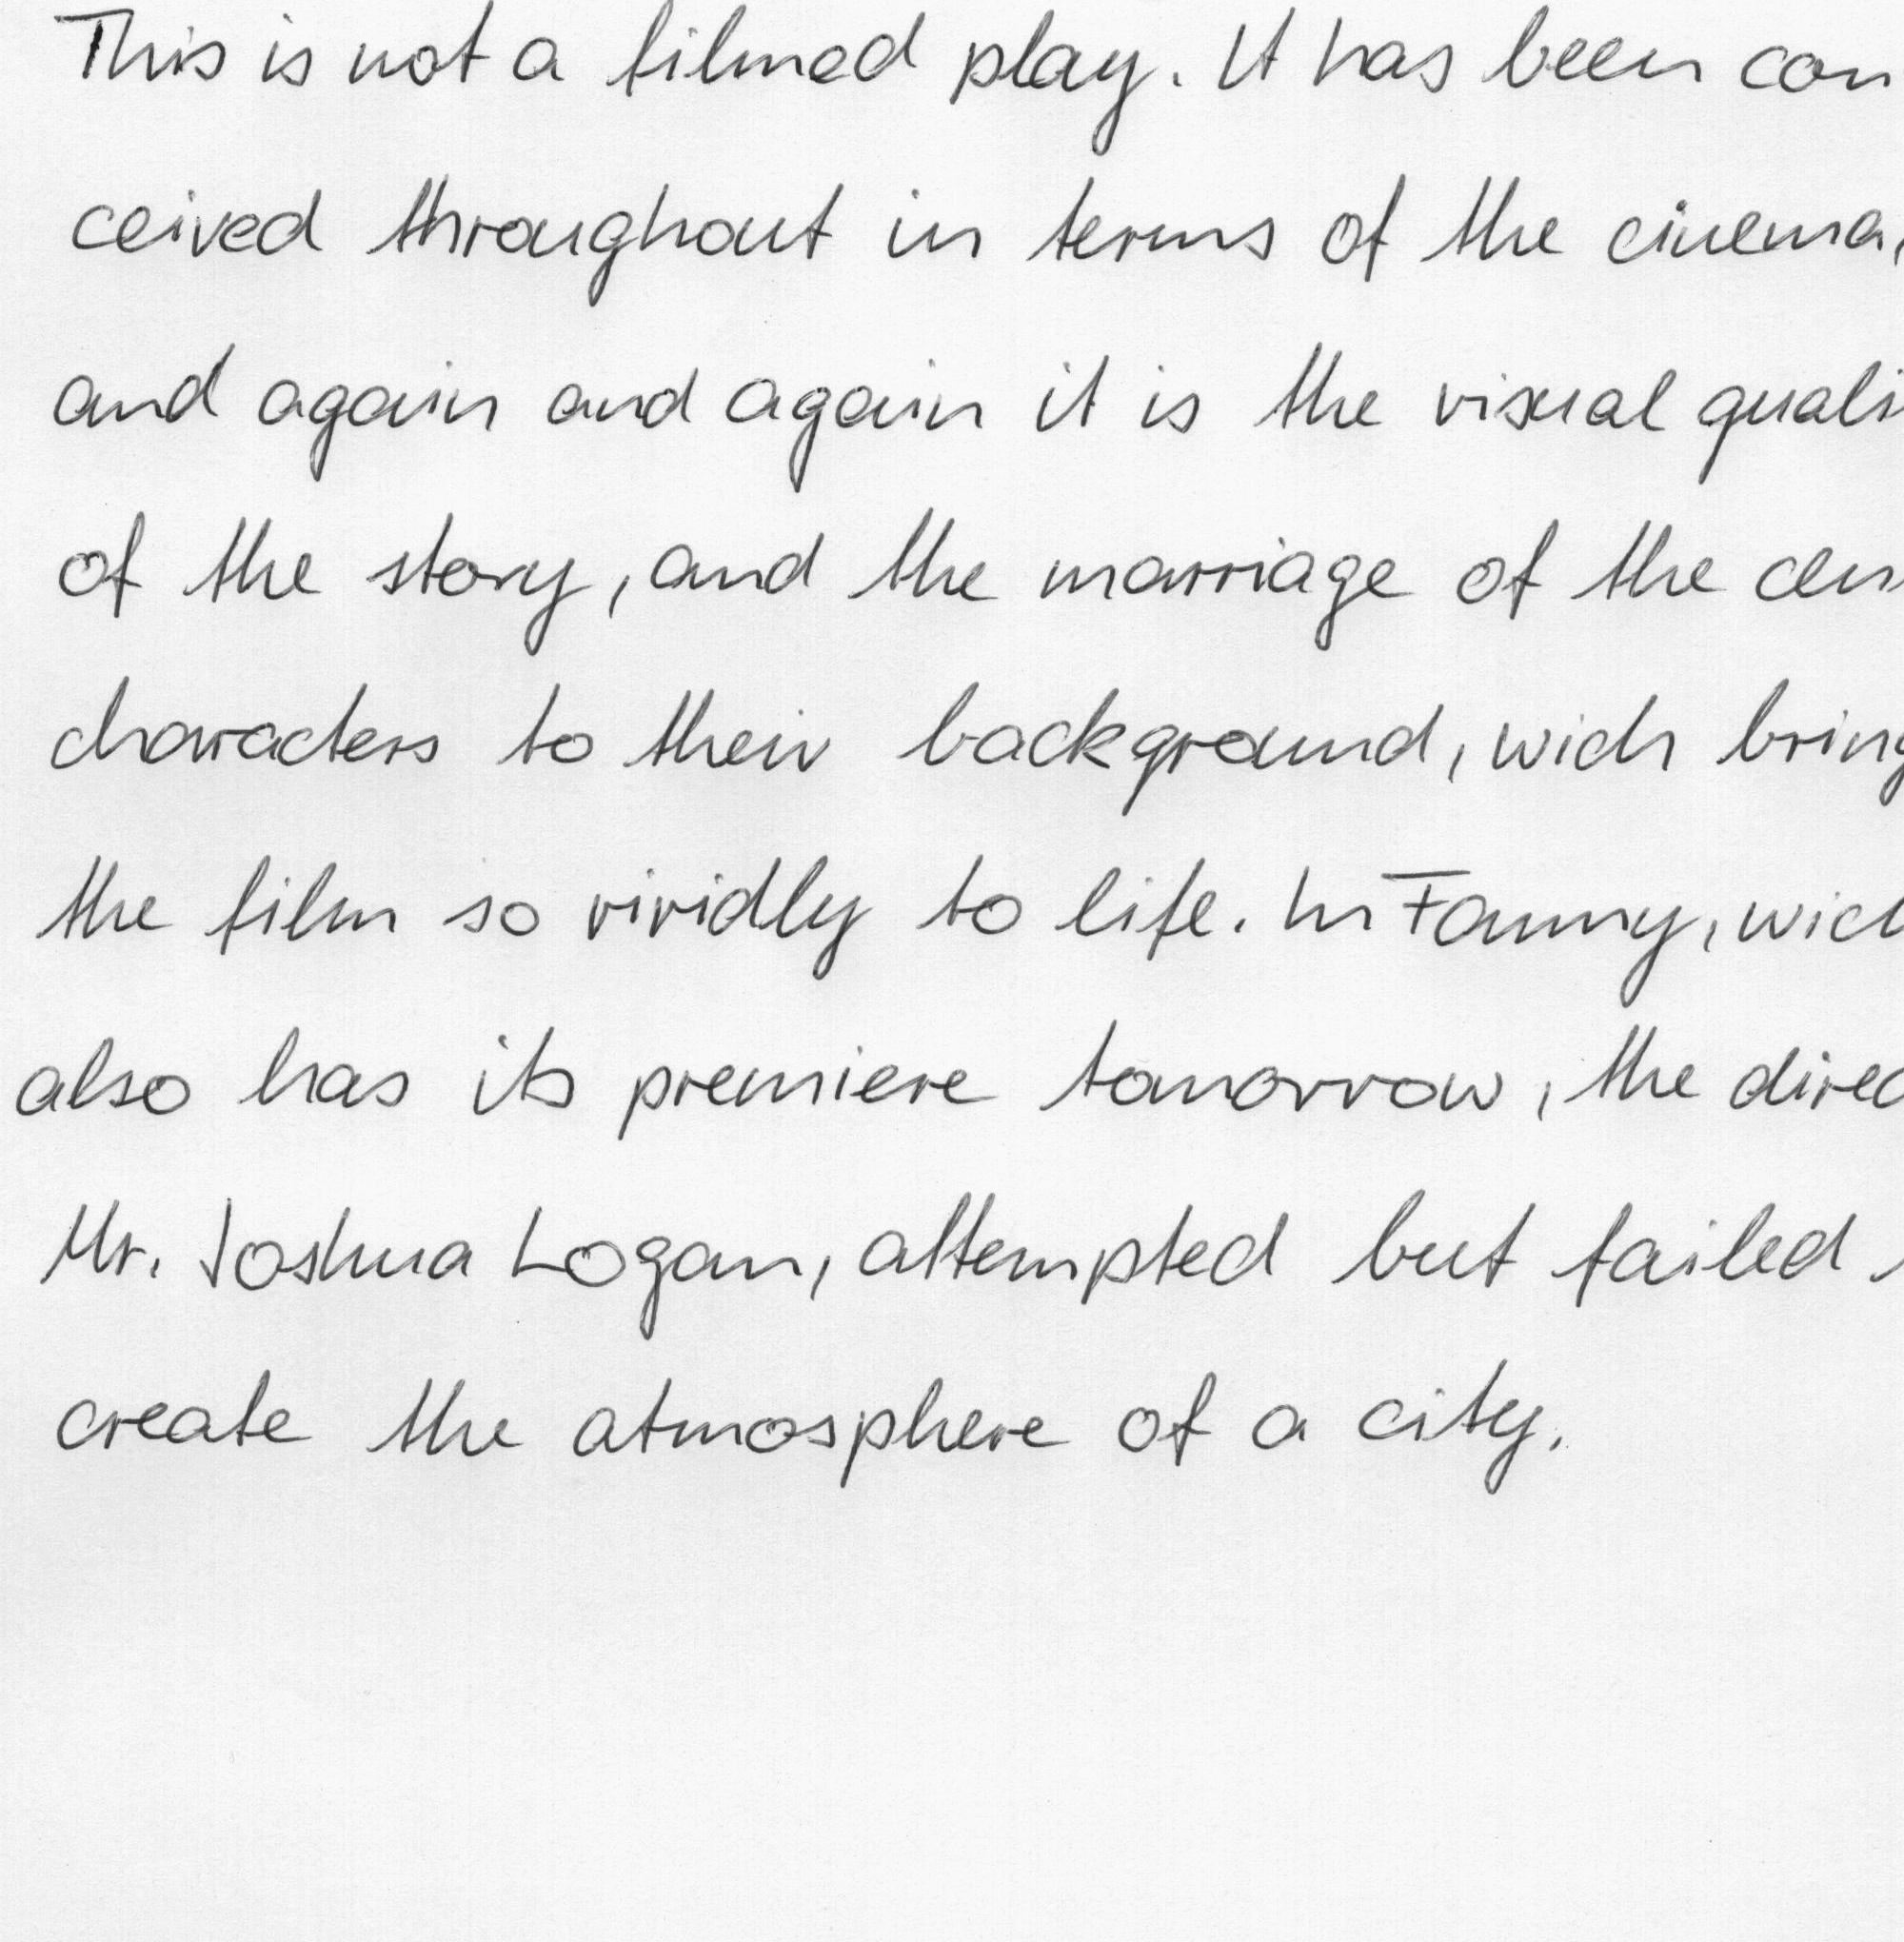 This is not a filmed play. It has been con
ceived throughout in terms of the cinema,
and again and again it is the visual quali
of the story, and the marriage of the cen
characters to their background, wich bring
the film so vividly to life. In Fanny, wich
also has its premiere tomorrow, the direc
Mr. Joshua Logan, attempted but failed
create the atmosphere of a city.